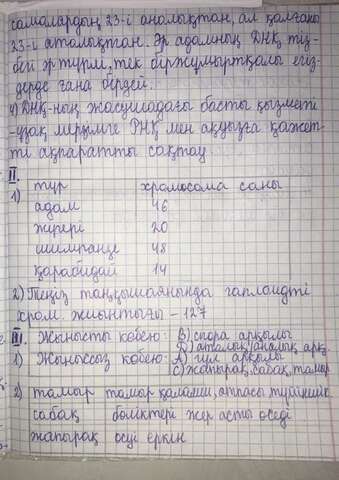 сомалардың 23-і аналықтан, ал қалғаны
23-і аталықтан. Әр адамның ДНҚ тіз-
бегі әр түрлі, тек біржұмыртқалы егіз-
дерде ғана бірдей.
4) ДНҚ-ның жасушадағы басты қызметі
-ұзақ мерзімге РНҚ мен ақуызға қажет-
ті ақпаратты сақтау
II.
1) түр хромосома саны
адам 46
жүгері 20
шимпанзе 48
қарабидай 14
2) Теңіз таңқышаянында гаплоидті
хром. жиынтығы - 127
III. Жынысты көбею: В) спора арқылы
D) аталық/аналық арқ.
1) Жыныссыз көбею: А) гүл арқылы
С) жапырақ, сабақ, тамыр
2) тамыр тамыр қалемше, атпасы түйіншік
сабақ бөліктері жер асты өседі
жапырақ өсуі еркін